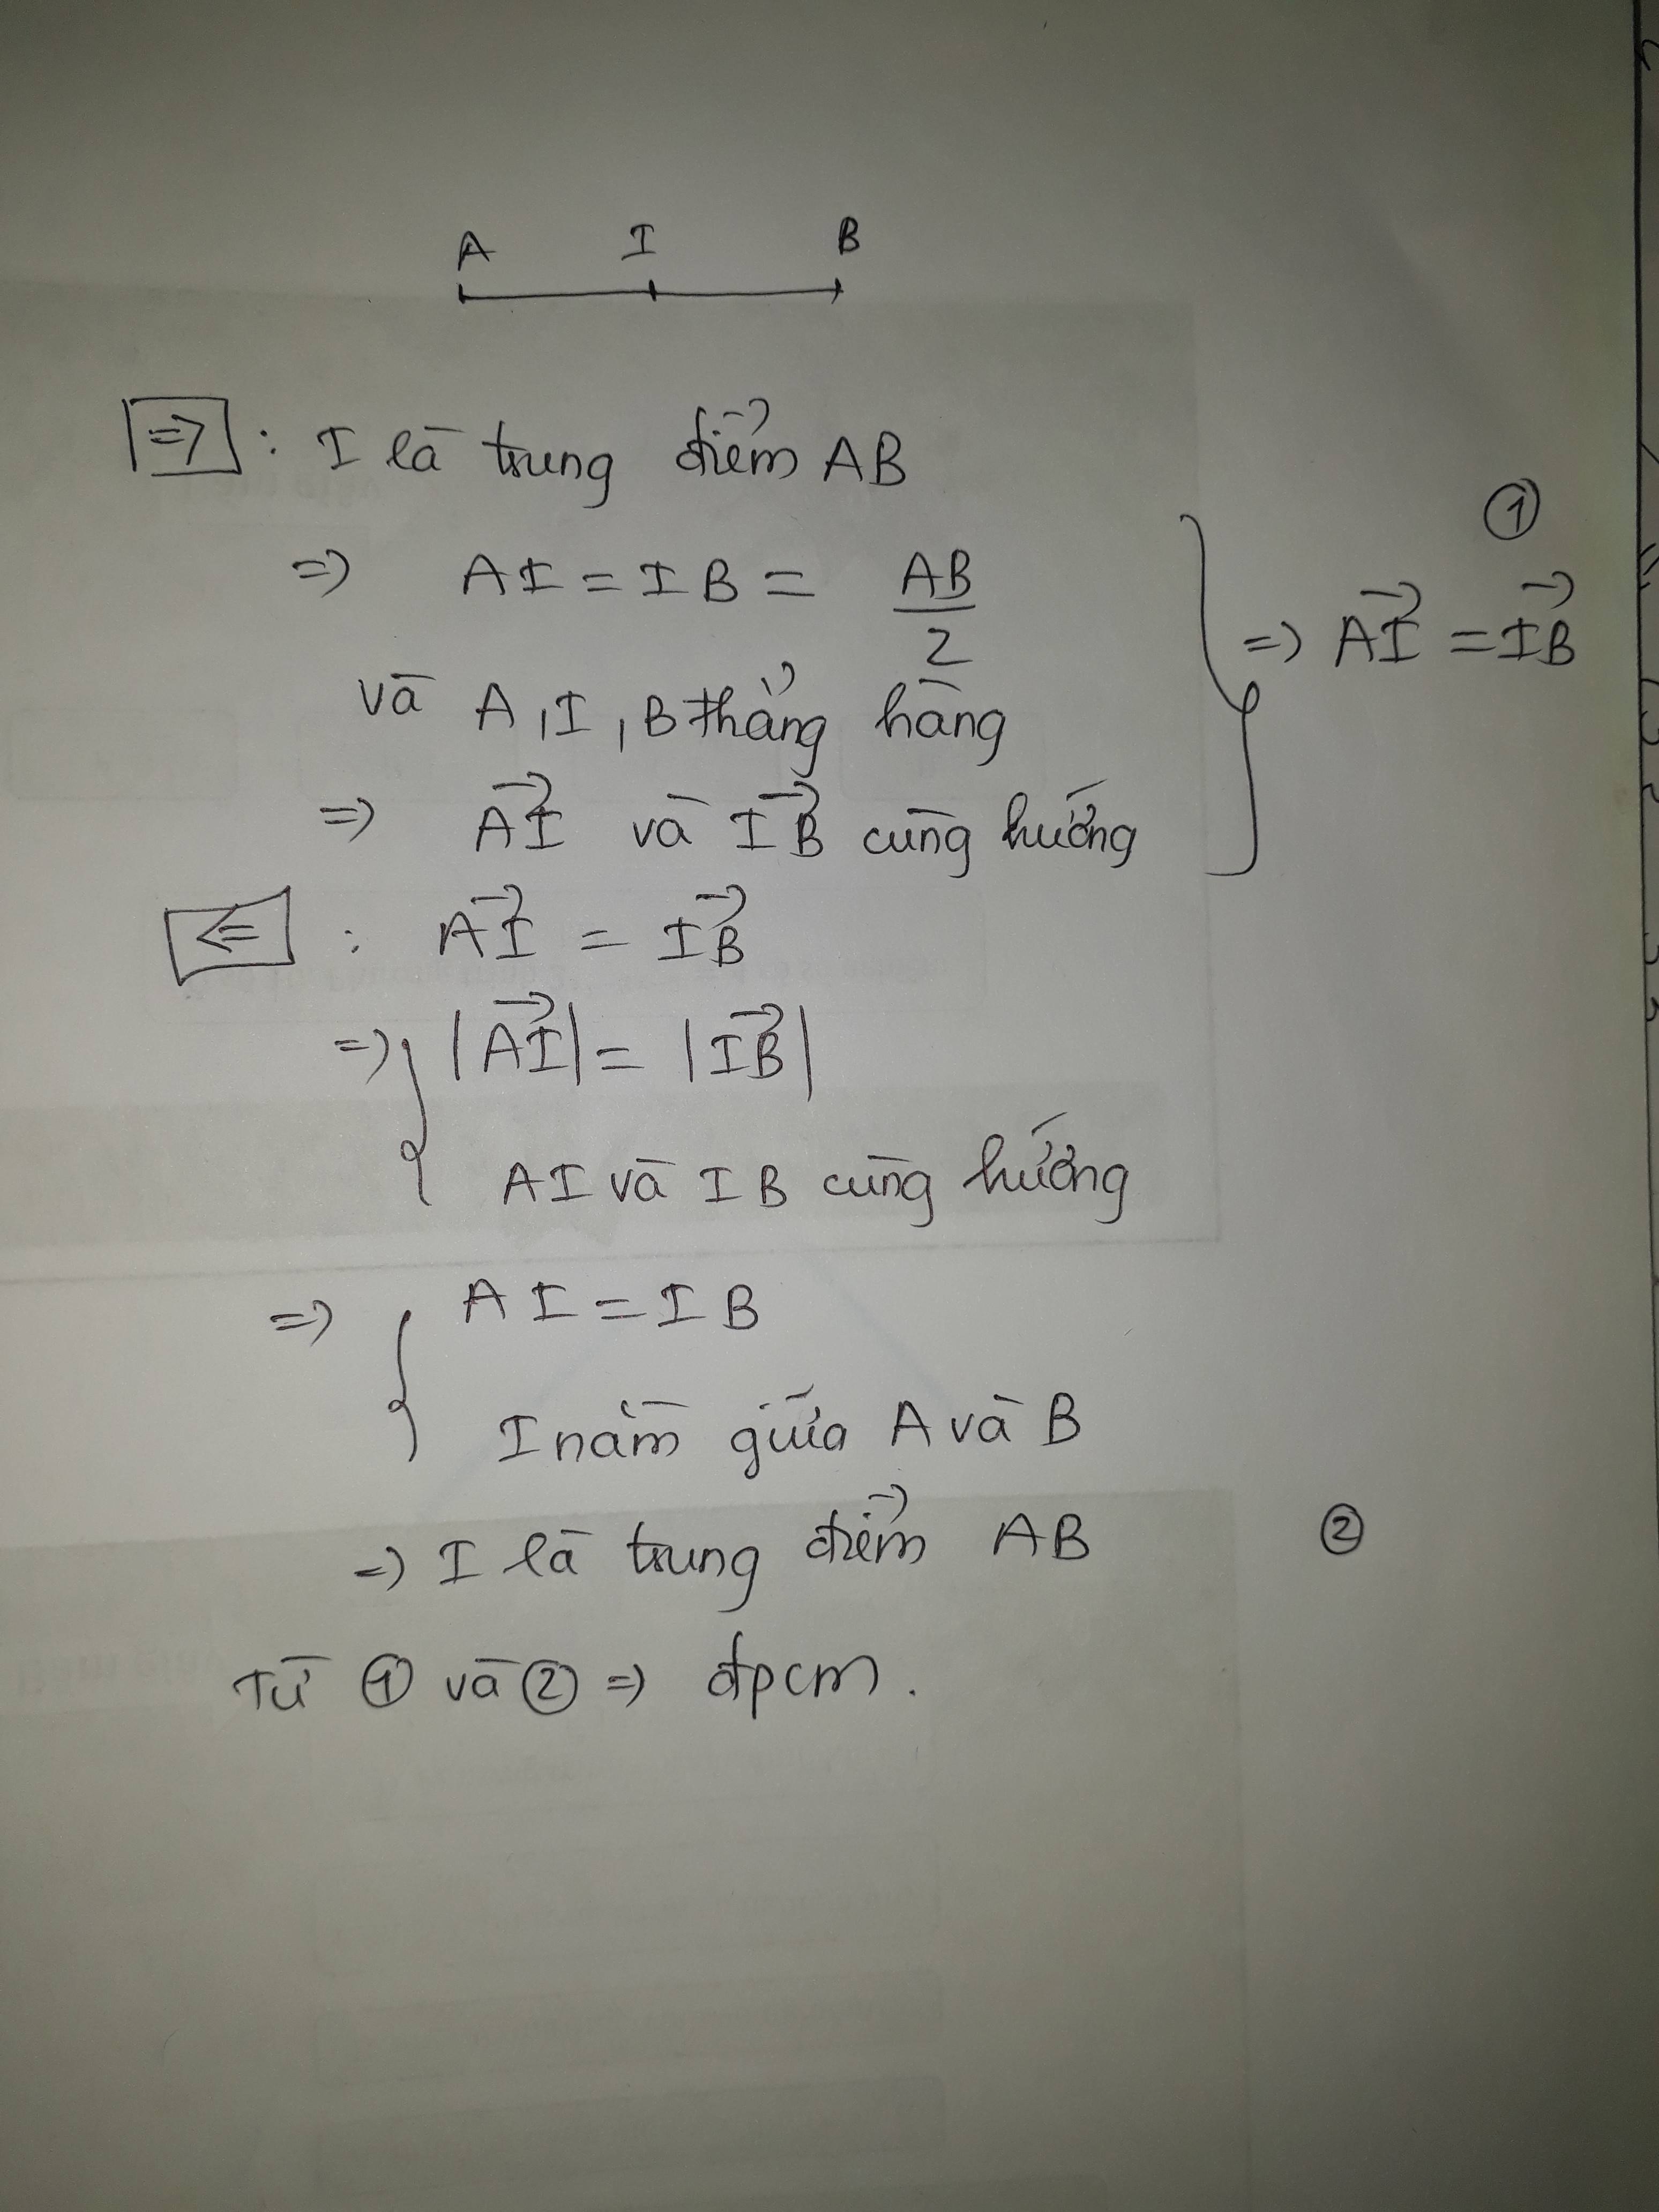 A I B
⇒ : I là trung điểm AB
⇒ AI = IB = AB/2
và A, I, B thẳng hàng
⇒ \overrightarrow{AI} và \overrightarrow{IB} cùng hướng
} ⇒ \overrightarrow{AI} = \overrightarrow{IB} ①
⇐ : \overrightarrow{AI} = \overrightarrow{IB}
⇒ { |\overrightarrow{AI}| = |\overrightarrow{IB}|
AI và IB cùng hướng
⇒ { AI = IB
I nằm giữa A và B
⇒ I là trung điểm AB ②
Từ ① và ② ⇒ đpcm.